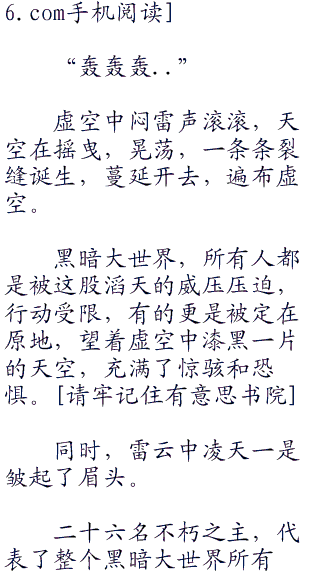 6.com手机阅读]
“轰轰轰..”
虚空中闷雷声滚滚，天
空在摇曳，晃荡，一条条裂
缝诞生，蔓延开去，遍布虚
空。
黑暗大世界，所有人都
是被这股滔天的威压压迫，
行动受限，有的更是被定在
原地，望着虚空中漆黑一片
的天空，充满了惊骇和恐
惧。[请牢记住有意思书院]
同时，雷云中凌天一是
皱起了眉头。
二十六名不朽之主，代
表了整个黑暗大世界所有